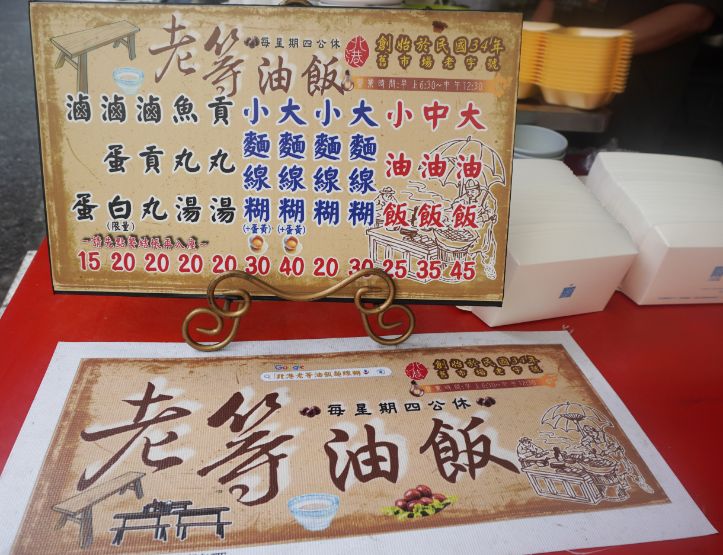 老等油飯
每星期四公休
北港
創始於民國34年
舊市場老字號
營業時間:早上6:30~中午12:30
滷蛋
滷蛋白(限量)
滷貢丸
魚丸湯
貢丸湯
小麵線糊(+蛋黃)
大麵線糊(+蛋黃)
小麵線糊
大麵線糊
小油飯
中油飯
大油飯
~請先點餐結帳再入座~
15 20 20 20 20 30 40 20 30 25 35 45
Google
北港老等油飯麵線糊
北港
創始於民國34年
舊市場老字號
營業時間:早上6:30~中午12:30
每星期四公休
老等油飯